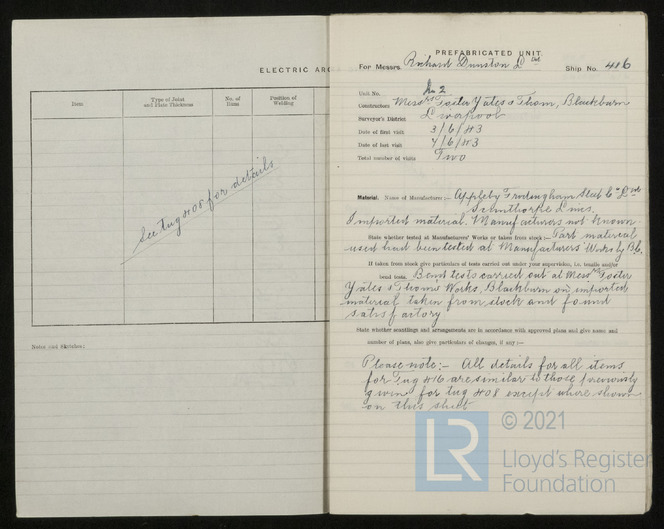 ELECTRIC ARC
Item
Type of Joint
and Plate Thickness
No. of
Runs
Position of
Welding
See tug 408 for details
Notes and Sketches:
PREFABRICATED UNIT.
For Messrs. Richard Dunston Ltd Ship No. 416
Unit No. No 2
Constructors Messrs Foster Yates & Thom, Blackburn
Surveyor's District Liverpool
Date of first visit 3/6/43
Date of last visit 4/6/43
Total number of visits Two
Material. Name of Manufacturer:— Appleby Frodingham Steel Co Ltd
Scunthorpe Lincs.
Imported material. Manufacturers not known
State whether tested at Manufacturers' Works or taken from stock:— Part material
used had been tested at Manufacturers' Works by
If taken from stock give particulars of tests carried out under your supervision, i.e. tensile and/or
bend tests. Bend tests carried out at Messrs Foster
Yates & Thom's Works, Blackburn on imported
material taken from stock and found
satisfactory
State whether scantlings and arrangements are in accordance with approved plans and give name and
number of plans, also give particulars of changes, if any:—
Please note:— All details for all items
for Tug 416 are similar to those previously
given for tug 408 except where shown
on this sheet
LR
© 2021
Lloyd's Register
Foundation